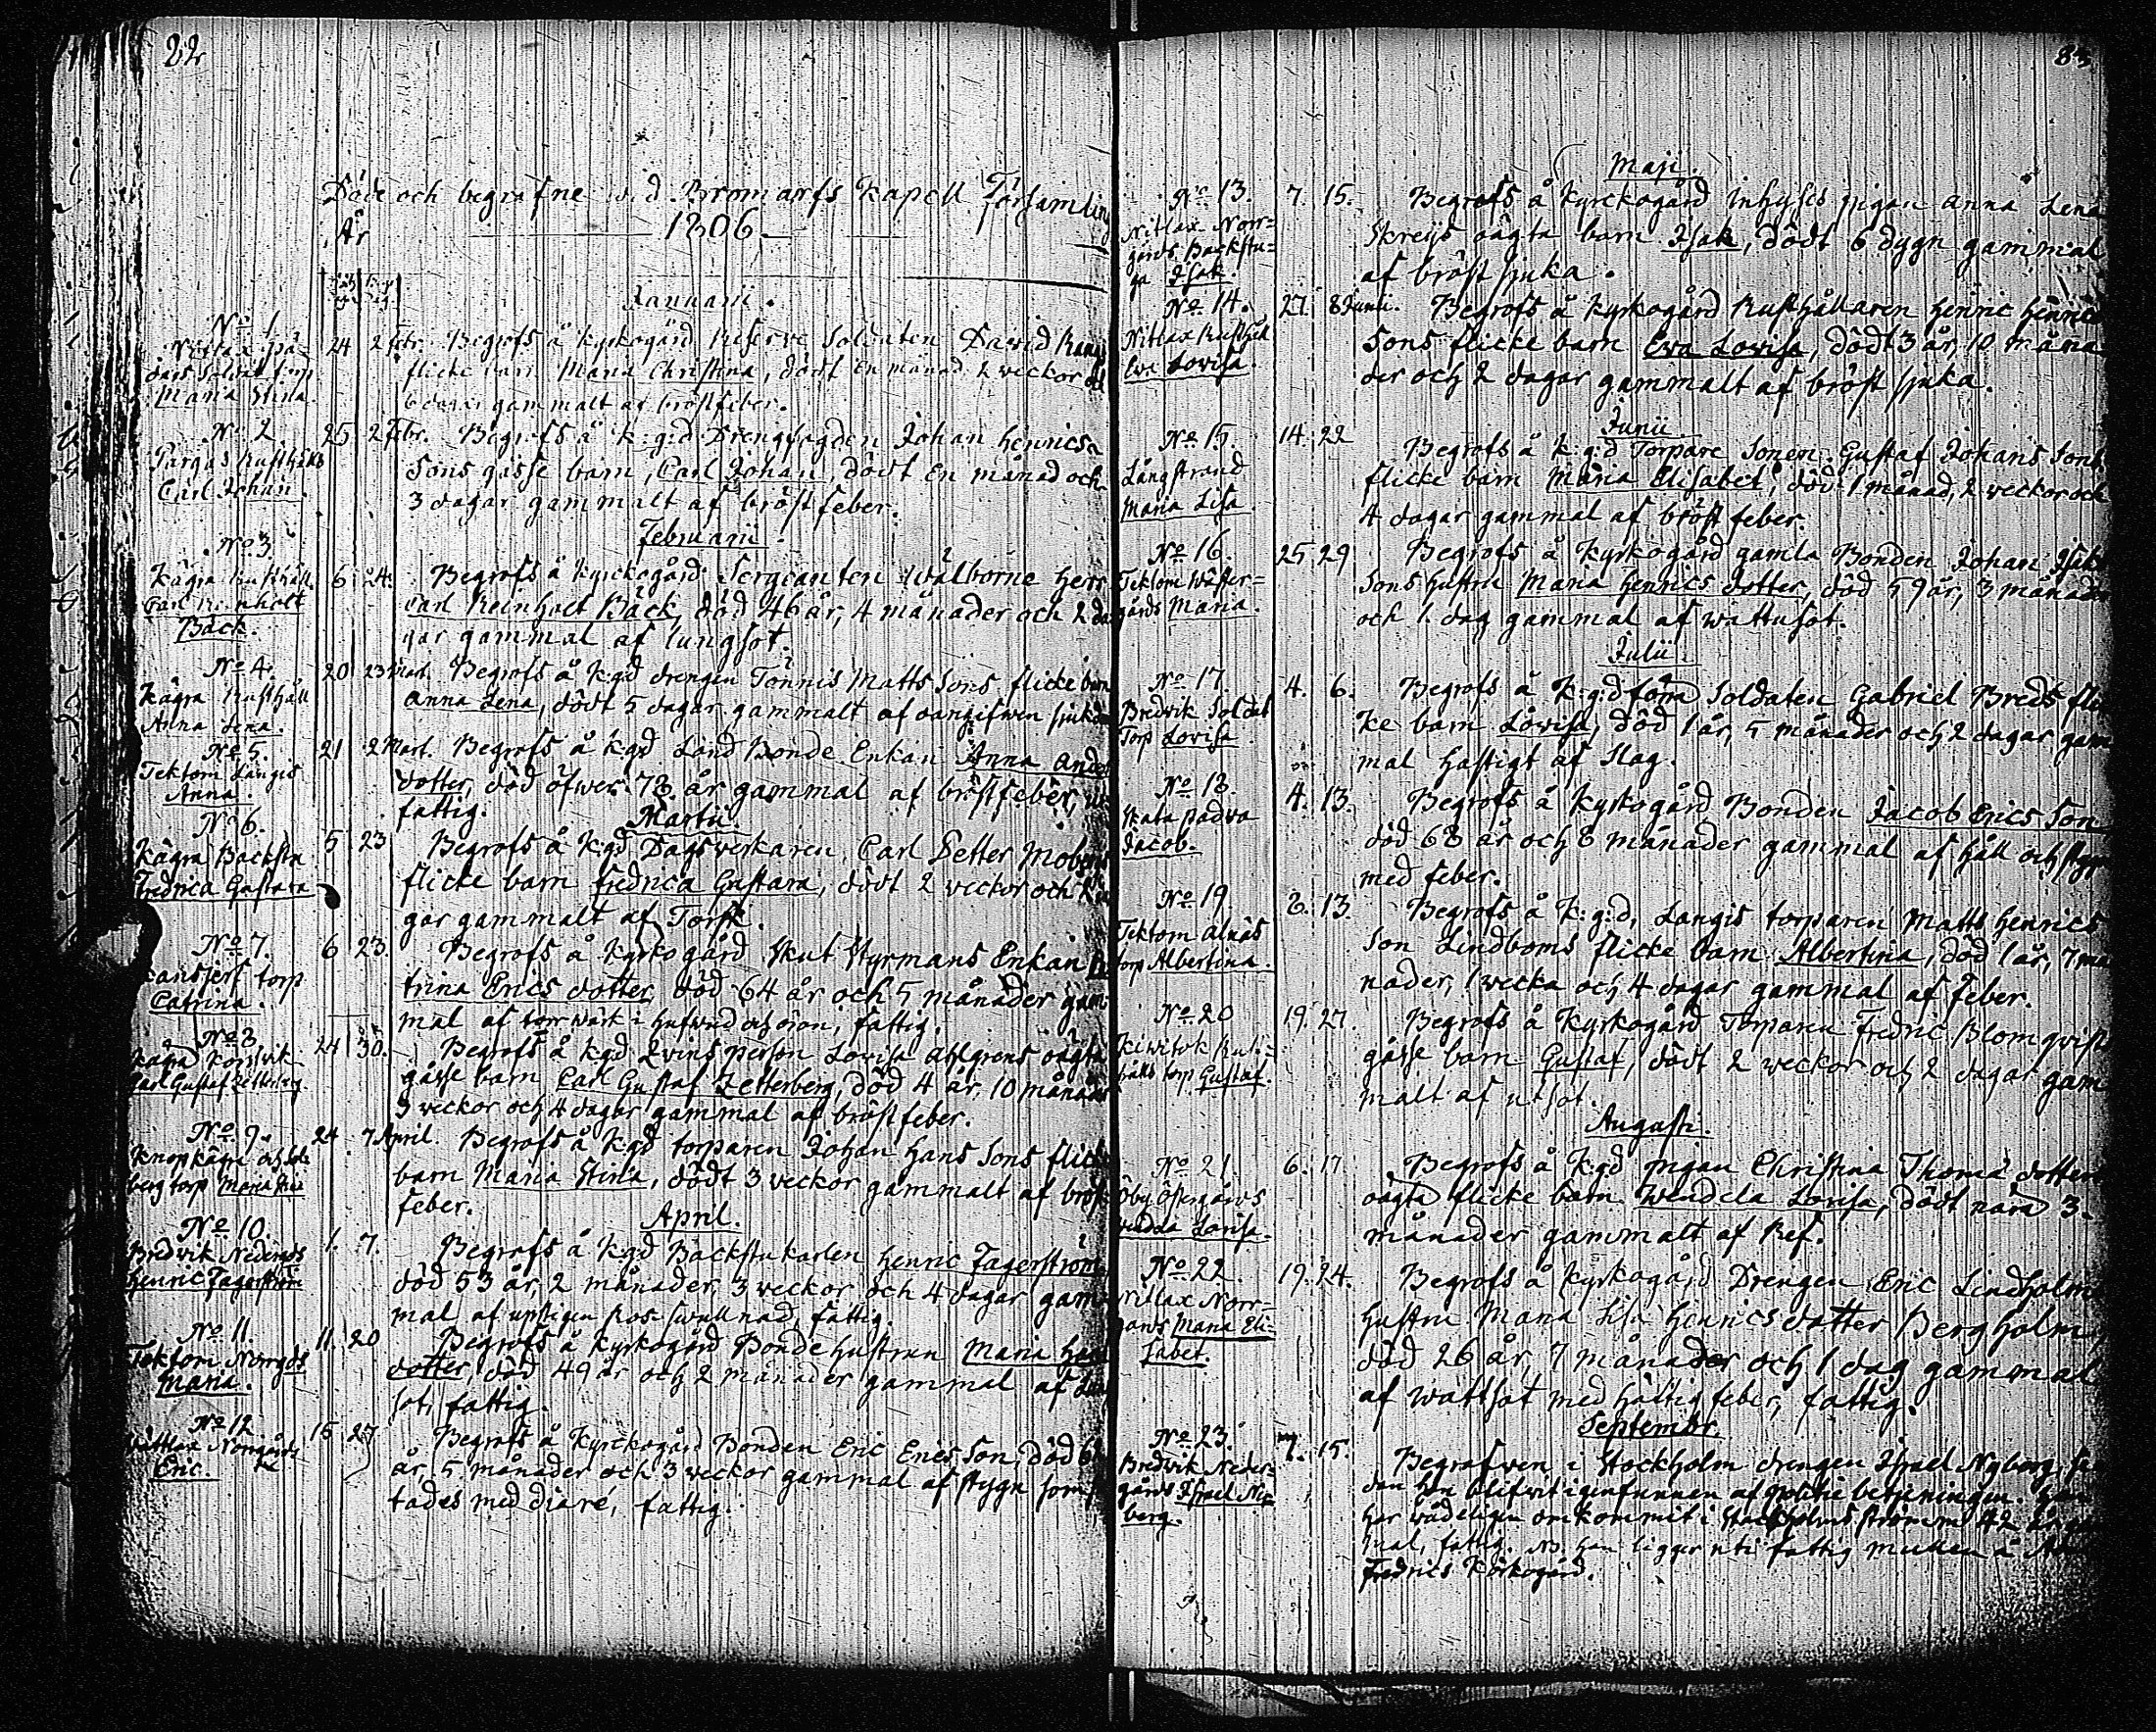 82
Döde och begrafne wid Bromarfs Kapell Församling
År 1806.
Januarii.
No 1
24 2 Febr. Begrofs å kyrkogård Reserve Soldaten Dawid
Maria Stina.
flicke barn Maria Christina, dödt En månad 2 weckor och
6 dagar gammalt af bröstfeber.
No 2
Pargas Rusthåll
Carl Johan.
25 2 Febr. Begrofs å k:g:d Drengjagden Johan Henrics
Sons gåsse barn, Carl Johan, dödt En månad och
3 dagar gammalt af bröstfeber.
Februarii.
No 3
Kågra Rusthåll
Carl Reinholt
Bäck.
6 24. Begrofs å Kyrckogård Sergeanten Wälborne Herr
Carl Reinholt Bäck, död 46 år, 4 månader och 2 da
gar gammal af lungsot.
No 4.
Kågra Rusthåll
Anna Lena.
20 23 Mart. Begrofs å k:g:d drengen Tönnis Matts Sons flicke barn
Anna Lena, dödt 5 dagar gammalt af oangifwen
No 5.
Tektom Långis
Anna.
21 2 Mart. Begrofs å k:g:d Land Bonde Enkan Anna Anders
dotter, död öfwer 78 år gammal af bröstfeber,
fattig.
Martii.
No 6.
Kågra Backstu
Fredrica Gustava
5 23 Begrofs å k:g:d Dagsverkaren, Carl Petter
flicke barn Fredrica Gustava, dödt 2 weckor och
gar gammalt af Torsk.
No 7.
torp
Catrina.
6 23. Begrofs å Kyrkogård Skut Styrmans Enkan
trina Erics dotter, död 64 år och 5 månader gam
mal af torrwärk i hufwud och öron, fattig.
No 8
Carl Gustaf Zetterberg.
24 30. Begrofs å k:g:d Qvins person Lovisa Ahlgrens oägta
gåsse barn Carl Gustaf Zetterberg, död 4 år, 10 månader
3 weckor och 4 dagar gammal af bröstfeber.
No 9
berg torp Maria Stina
24 7 April. Begrofs å k:g:d torparen Johan Hans Sons flicke
barn Maria Stina, dödt 3 weckor gammalt af bröst
feber.
April.
No 10
Bredvik Nedergds
Henric Fagerström
1. 7. Begrofs å k:g:d Backstukarlen Henric Fagerström,
död 53 år, 2 månader, 3 weckor och 4 dagar gam
mal af swullnad, fattig.
No 11.
Tektom Norrgds
Maria.
11. 20 Begrofs å Kyrkogård Bonde hustrun Maria
dotter, död 49 år och 2 månader gammal af
sot, fattig.
No 12
Norrgårds
Eric.
15 27 Begrofs å Kyrckogård Bonden Eric Erics Son, död
år, 5 månader och 3 weckor gammal af stygn som
tades med diaré, fattig.
83
Maji.
No 13.
Nitlax Norr=
gårds Backstu=
ga Isak.
7. 15. Begrofs å Kyrckogård Inhyses pigan Anna Lena
oägta barn Isak, dödt 6 dygn gammal
af bröst sjuka.
No 14.
Nitlax Rusthåll
Eva Lovisa.
27. 8 Junii. Begrofs å Kyrkogård Rusthållaren Henric Henrics
Sons flicke barn Eva Lovisa, dödt 3 år, 10 måna
der och 2 dagar gammalt af bröst sjuka.
Junii
No 15.
Långstrand
Maria Lisa
14. 22 Begrofs å k:g:d Torpare Sonen Gustaf Johans Sons
flicke barn Maria Elisabet, död 1 månad, 2 weckor och
4 dagar gammal af bröst feber.
No 16.
Tektom Wäster=
gårds Maria.
25. 29 Begrofs å Kyrkogård gamla Bonden Johan Isaks
Sons hustru Maria Henrics dotter, död 59 år, 3 månader
och 1 dag gammal af wattusot.
Julii.
No 17
Bredvik Soldat
Torp Lovisa
4. 6. Begrofs å k:g:d förra Soldaten Gabriel Breds flic
ke barn Lovisa, död 1 år, 5 månader och 2 dagar gam
mal hastigt af slag.
No 18.
Skata padva
Jacob.
4. 13. Begrofs å Kyrkogård Bonden Jacob Erics Son
död 68 år och 8 månader gammal af håll och styn
med feber.
No 19
Tektom Alnäs
torp Albertina.
8. 13. Begrofs å k:g:d, Långis torparen Matts Henrics
Son Lindboms flicke barn Albertina, död 1 år, 7 må
nader, 1 wecka och 4 dagar gammal af feber.
No 20
Kiwitok Rust=
hålls torp Gustaf.
19. 27. Begrofs å Kyrkogård Torparen Fredric Blomqvist
gåsse barn Gustaf, dödt 2 weckor och 2 dagar gam
malt af utsot.
Augusti.
No 21.
Öby Östergårds
Lovisa.
6. 17. Begrofs å k:g:d pigan Christina Thomæ dotters
oägta flicke barn Wendela Lovisa, dödt nära 3
månader gammalt af Ref.
No 22.
Nitlax Norr=
gårds Maria Eli=
sabet.
19. 24. Begrofs å Kyrkogård Drengen Eric Lindholms
hustru Maria Lisa Henrics dotter Bergholm,
död 26 år, 7 månader och 1 dag gammal
af wattsot med häftig feber, fattig.
Septembr.
No 23.
Bredvik Neder=
gårds Israel Ny=
berg.
7. 15. Begrafwen i Stockholm drengen Israel Nyberg,
dan han blifwit igenfunnen af police betjeningen. Han
har wådeligen omkommit i Stockholms ström 42 år gam
mal, fattig. NB. han ligger uti fattig mullen å
Fredrics Körkogård.